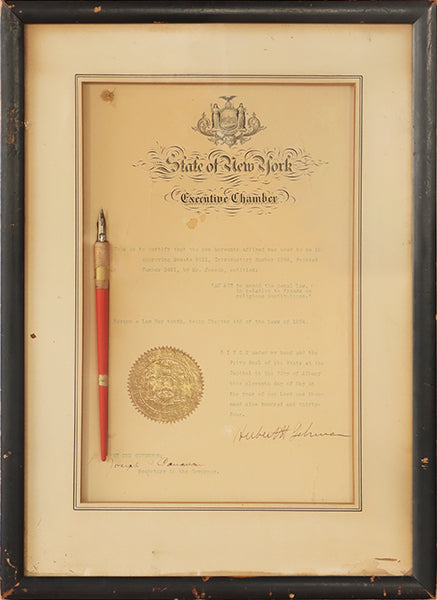 State of New York
Executive Chamber
This is to certify that the pen hereunto affixed was used by me in
approving Senate Bill, Introductory Number, Printed
Number, by Mr. Joseph, entitled:
"AN ACT to amend the penal law,
in relation to frauds on
religious institutions."
Became a Law May tenth, being Chapter of the Laws of 1934.
GIVEN under my hand and the
Privy Seal of the State at the
Capitol in the City of Albany
this eleventh day of May in
the year of our Lord one thou-
sand nine hundred and thirty-
four.
Herbert H Lehman
BY THE GOVERNOR:
Joseph Canavan
Secretary to the Governor.